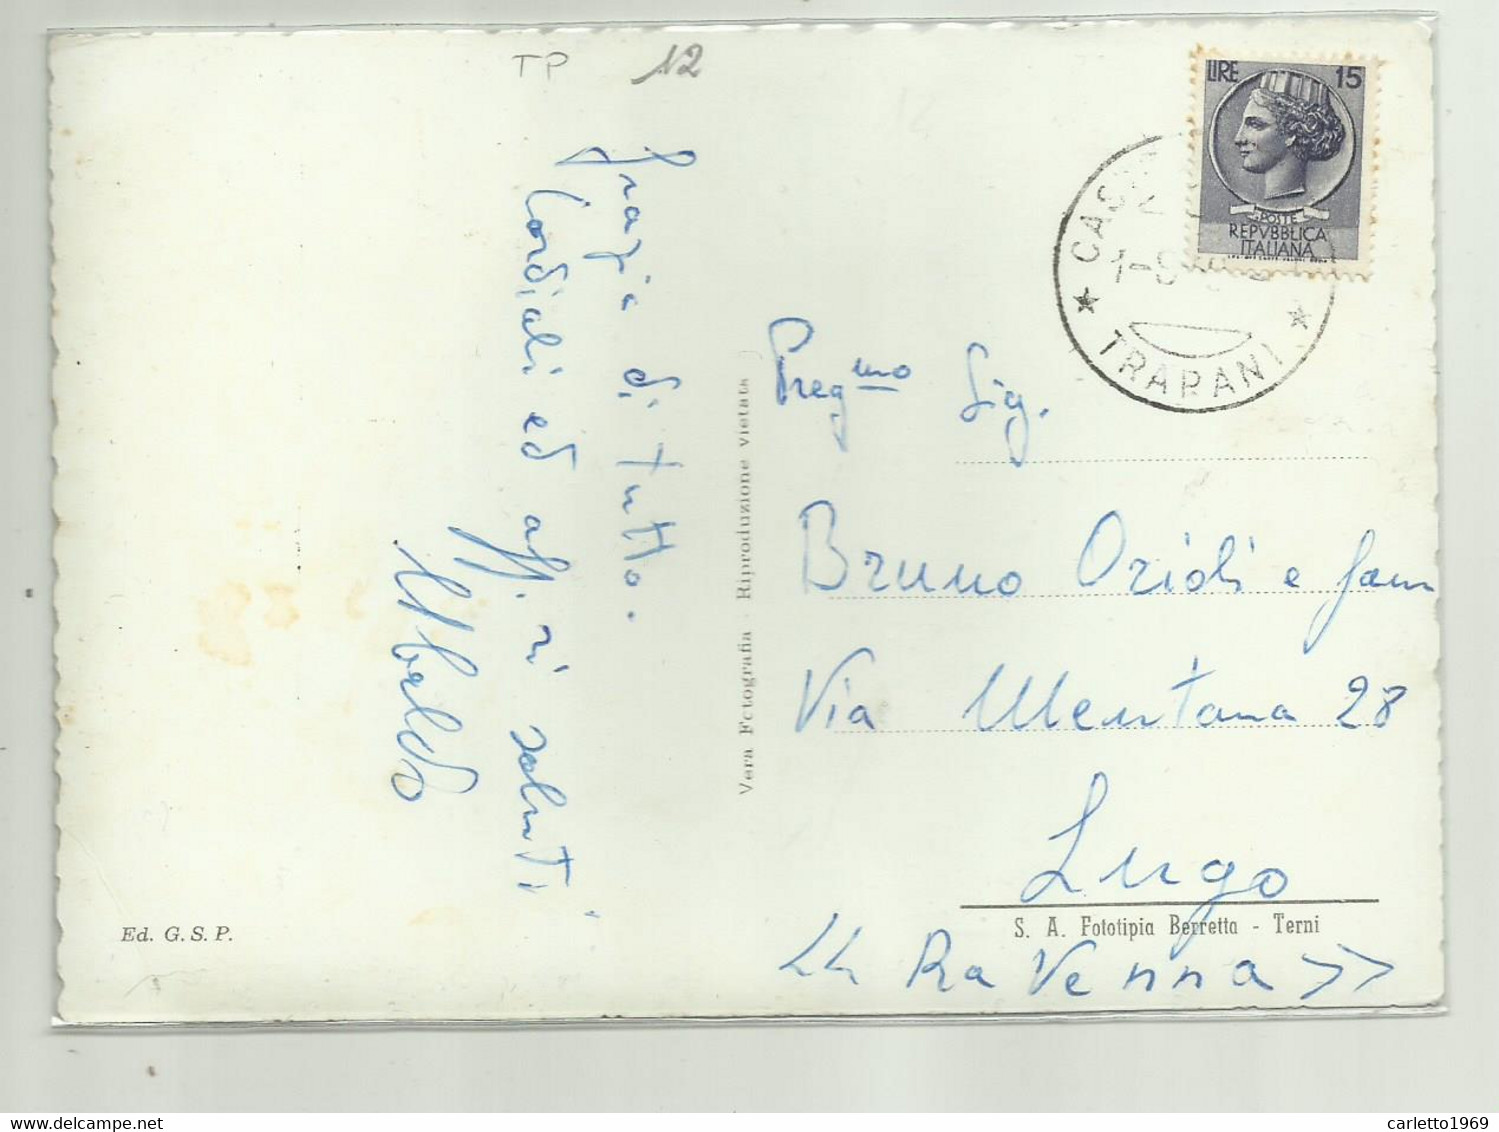 TP 12
LIRE 15
POSTE
REPVBBLICA
ITALIANA
TRAPANI
Grazie di tutto.
Cordiali ed aff.zi saluti
Ubaldo
Vera Fotografia - Riproduzione vietata
Preg.mo Sig.
Bruno Orioli e fam
Via Mentana 28
Lugo
S. A. Fototipia Berretta - Terni
<< Ravenna >>
Ed. G. S. P.
carletto1969